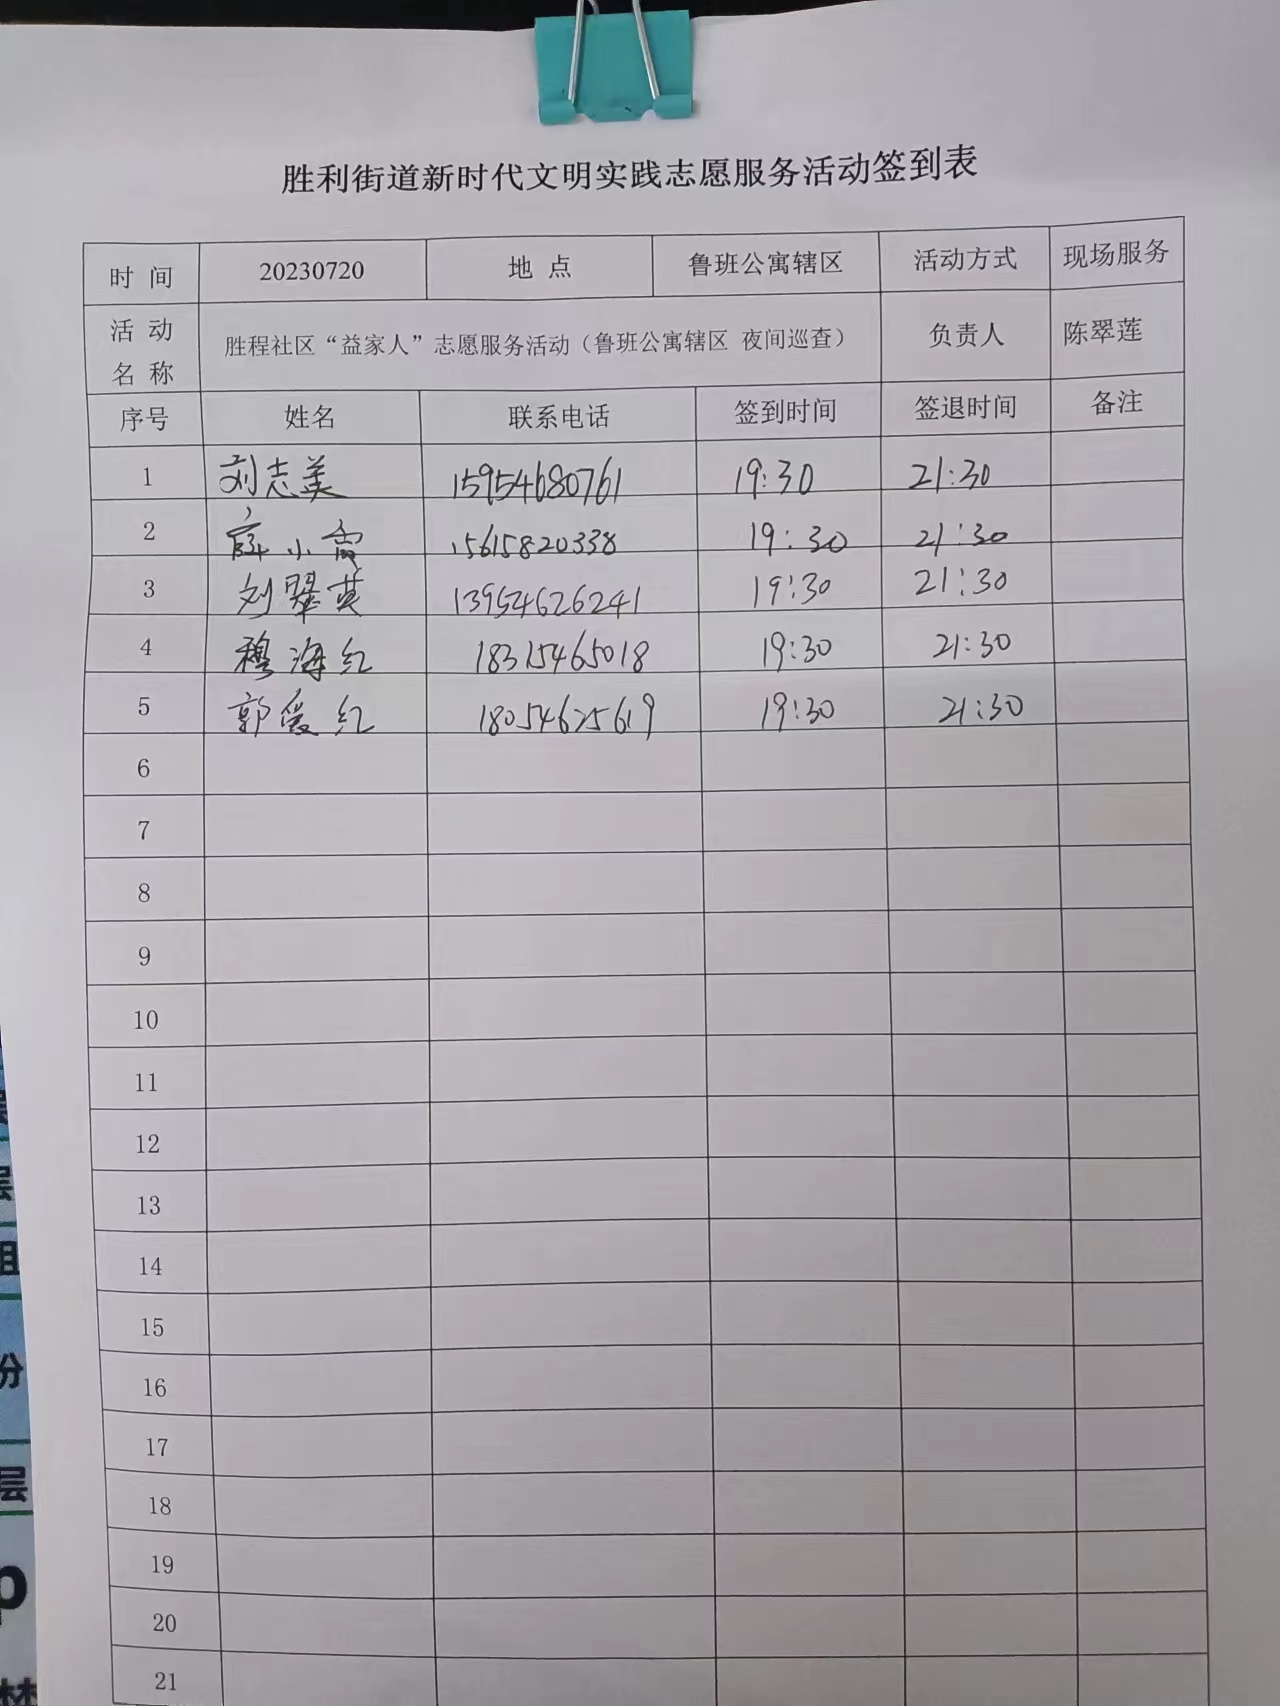 胜利街道新时代文明实践志愿服务活动签到表
时 间 20230720 地 点 鲁班公寓辖区 活动方式 现场服务
活 动 名 称 胜程社区“益家人”志愿服务活动（鲁班公寓辖区 夜间巡查） 负责人 陈翠莲
序号 姓名 联系电话 签到时间 签退时间 备注
1 刘志美 15954680761 19:30 21:30
2 薛小霞 15615820338 19:30 21:30
3 刘翠英 13954626241 19:30 21:30
4 穆海红 18315465018 19:30 21:30
5 郭爱红 18054625619 19:30 21:30
6
7
8
9
10
11
12
13
14
15
16
17
18
19
20
21
层
组
份
层
p
林